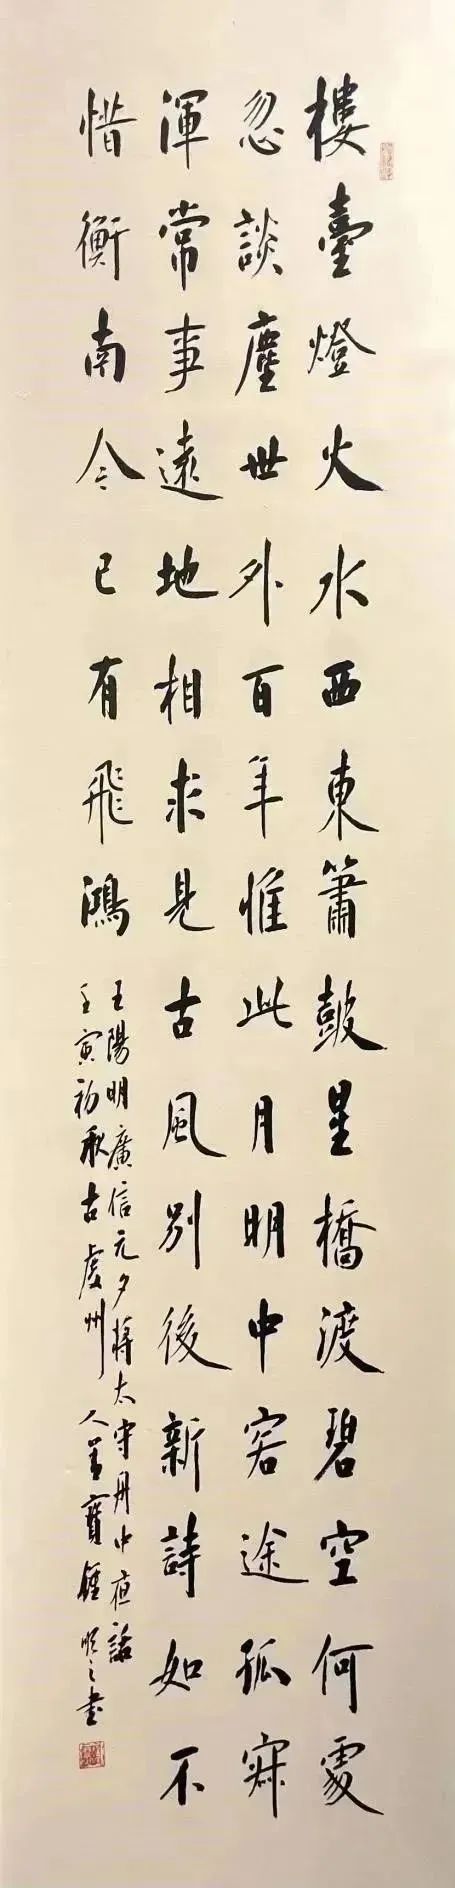 樓臺燈火水西東簫鼓星橋渡碧空何處
忽談塵世外百年惟此月明中客途孤寂
渾常事遠地相求見古風別後新詩如不
惜衡南今已有飛鴻
王陽明廣信元夕蔣太守舟中夜話
壬寅初秋古虔州人寶書